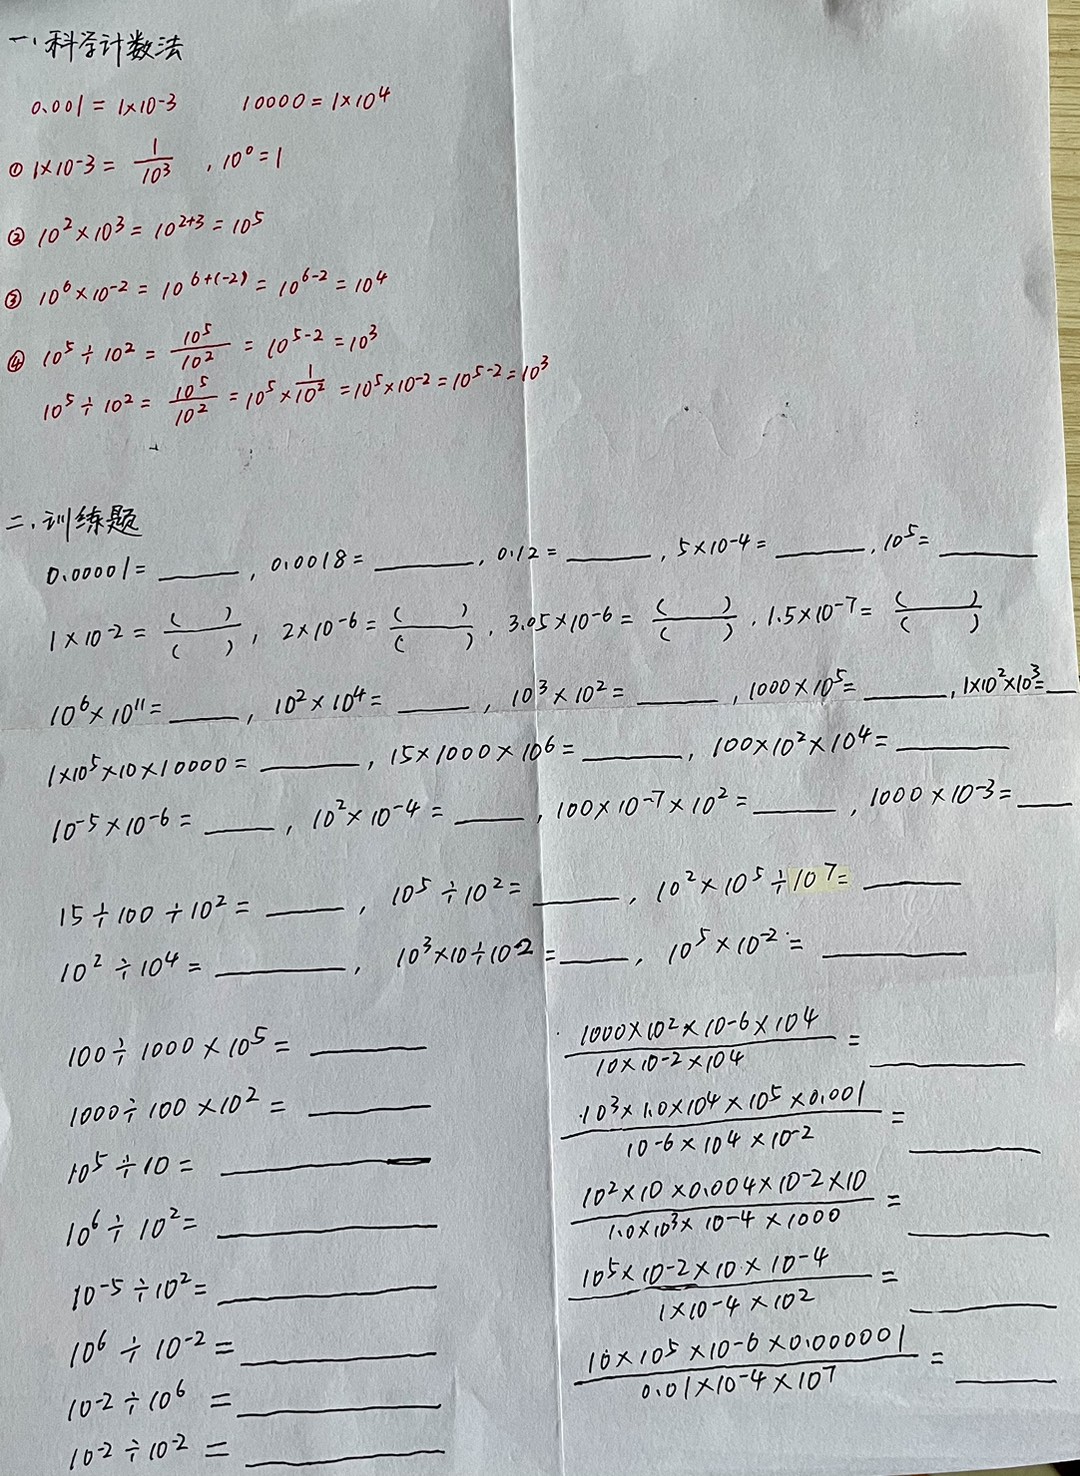 一、科学计数法
0.001 = 1×10⁻³ 10000 = 1×10⁴
① 1×10⁻³ = 1/10³ , 10⁰ = 1
② 10²×10³ = 10²⁺³ = 10⁵
③ 10⁶×10⁻² = 10⁶⁺⁽⁻²⁾ = 10⁶⁻² = 10⁴
④ 10⁵÷10² = 10⁵/10² = 10⁵⁻² = 10³
10⁵÷10² = 10⁵/10² = 10⁵×1/10² = 10⁵×10⁻² = 10⁵⁻² = 10³
二、训练题
0.00001= ____ , 0.0018= ____ , 0.12= ____ , 5×10⁻⁴= ____ , 10⁵= ____
1×10⁻² = ( )/( ) , 2×10⁻⁶ = ( )/( ) , 3.05×10⁻⁶ = ( )/( ) , 1.5×10⁻⁷ = ( )/( )
10⁶×10¹¹= ____ , 10²×10⁴= ____ , 10³×10²= ____ , 1000×10⁵= ____ , 1×10²×10³= ____
1×10⁵×10×10000 = ____ , 15×1000×10⁶= ____ , 100×10²×10⁴= ____
10⁻⁵×10⁻⁶ = ____ , 10²×10⁻⁴ = ____ , 100×10⁻⁷×10² = ____ , 1000×10⁻³= ____
15÷100÷10² = ____ , 10⁵÷10²= ____ , 10²×10⁵÷10⁷= ____
10²÷10⁴ = ____ , 10³×10÷10⁻² = ____ , 10⁵×10⁻² = ____
100÷1000×10⁵= ____
1000÷100×10² = ____
10⁵÷10 = ____
10⁶÷10²= ____
10⁻⁵÷10²= ____
10⁶÷10⁻² = ____
10⁻²÷10⁶ = ____
10⁻²÷10⁻² = ____
1000×10²×10⁻⁶×10⁴/10×10⁻²×10⁴ = ____
10³×1.0×10⁴×10⁵×0.001/10⁻⁶×10⁴×10⁻² = ____
10²×10×0.004×10⁻²×10/1.0×10³×10⁻⁴×1000 = ____
10⁵×10⁻²×10×10⁻⁴/1×10⁻⁴×10² = ____
10×10⁵×10⁻⁶×0.000001/0.01×10⁻⁴×10⁷ = ____